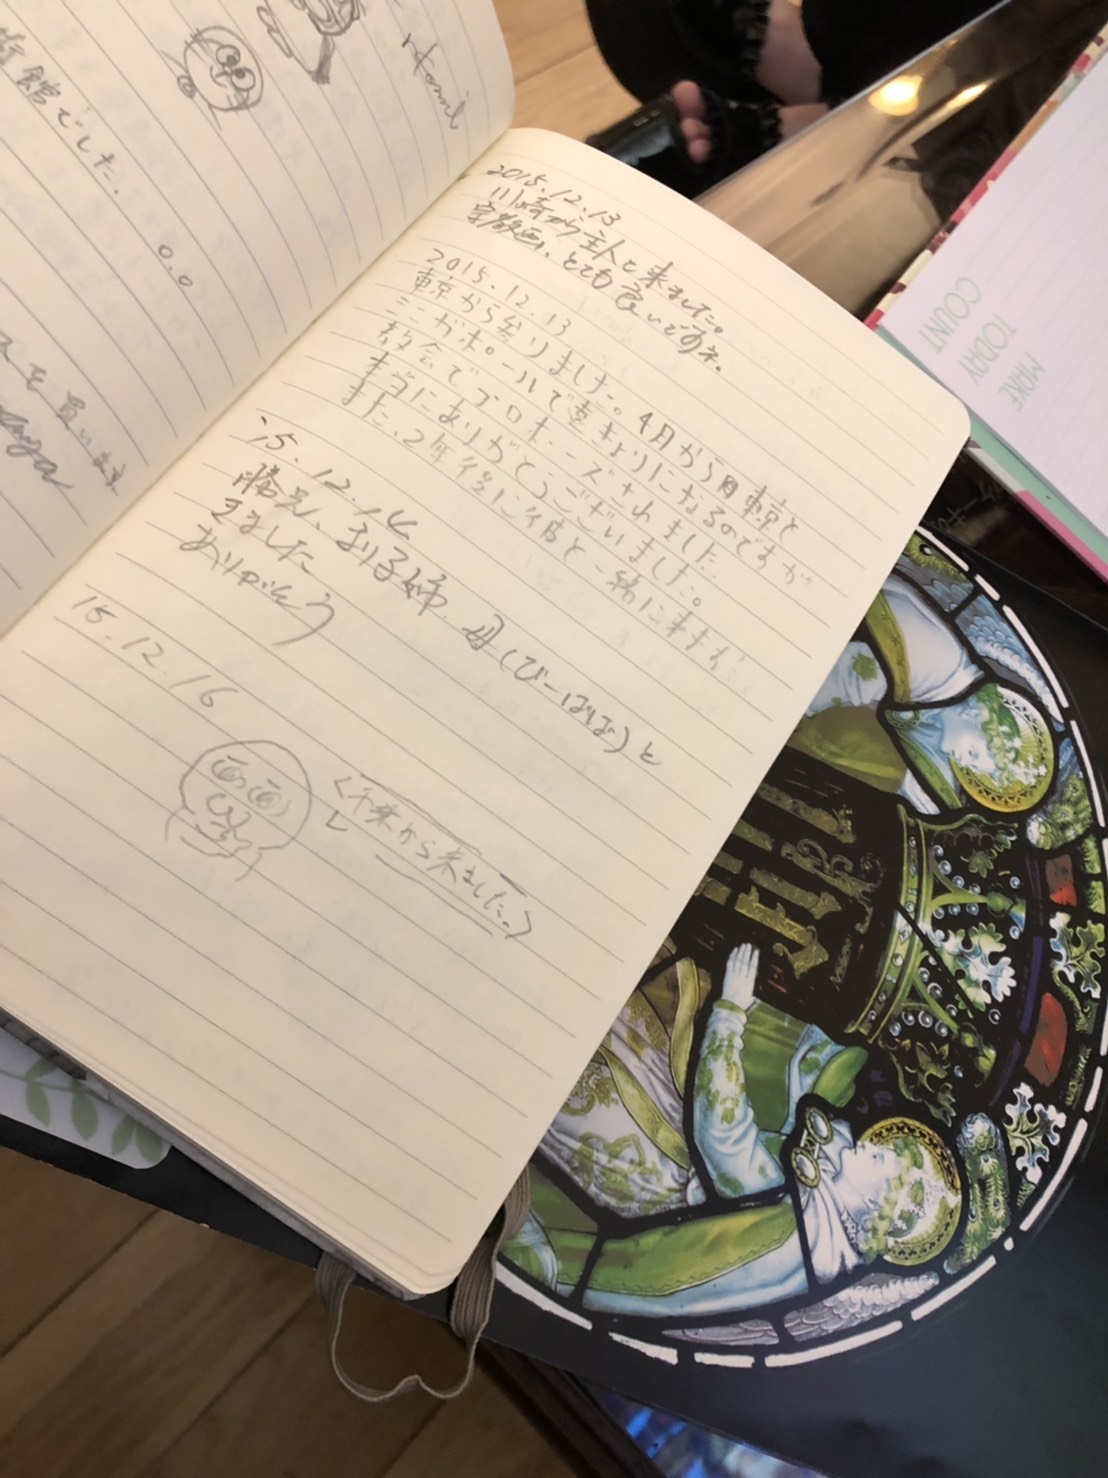 術館でした.
0.0
スを買います
2015.12.13
川崎から主人と来ました。
宗教画、とても良いですネ.
2015.12.13
東京から参りました。4月から東京と
ネパールで遠きょりになるのですが
教会でプロポーズされました.
本当にありがとうございました。
また、2年後に彼と一緒に来ます
'15.12.14
勝兄、まり子姉、母(びーばば)と
きました
ありがとう
15.12.16
<千葉から来ました。>
MAKE
TODAY
COUNT